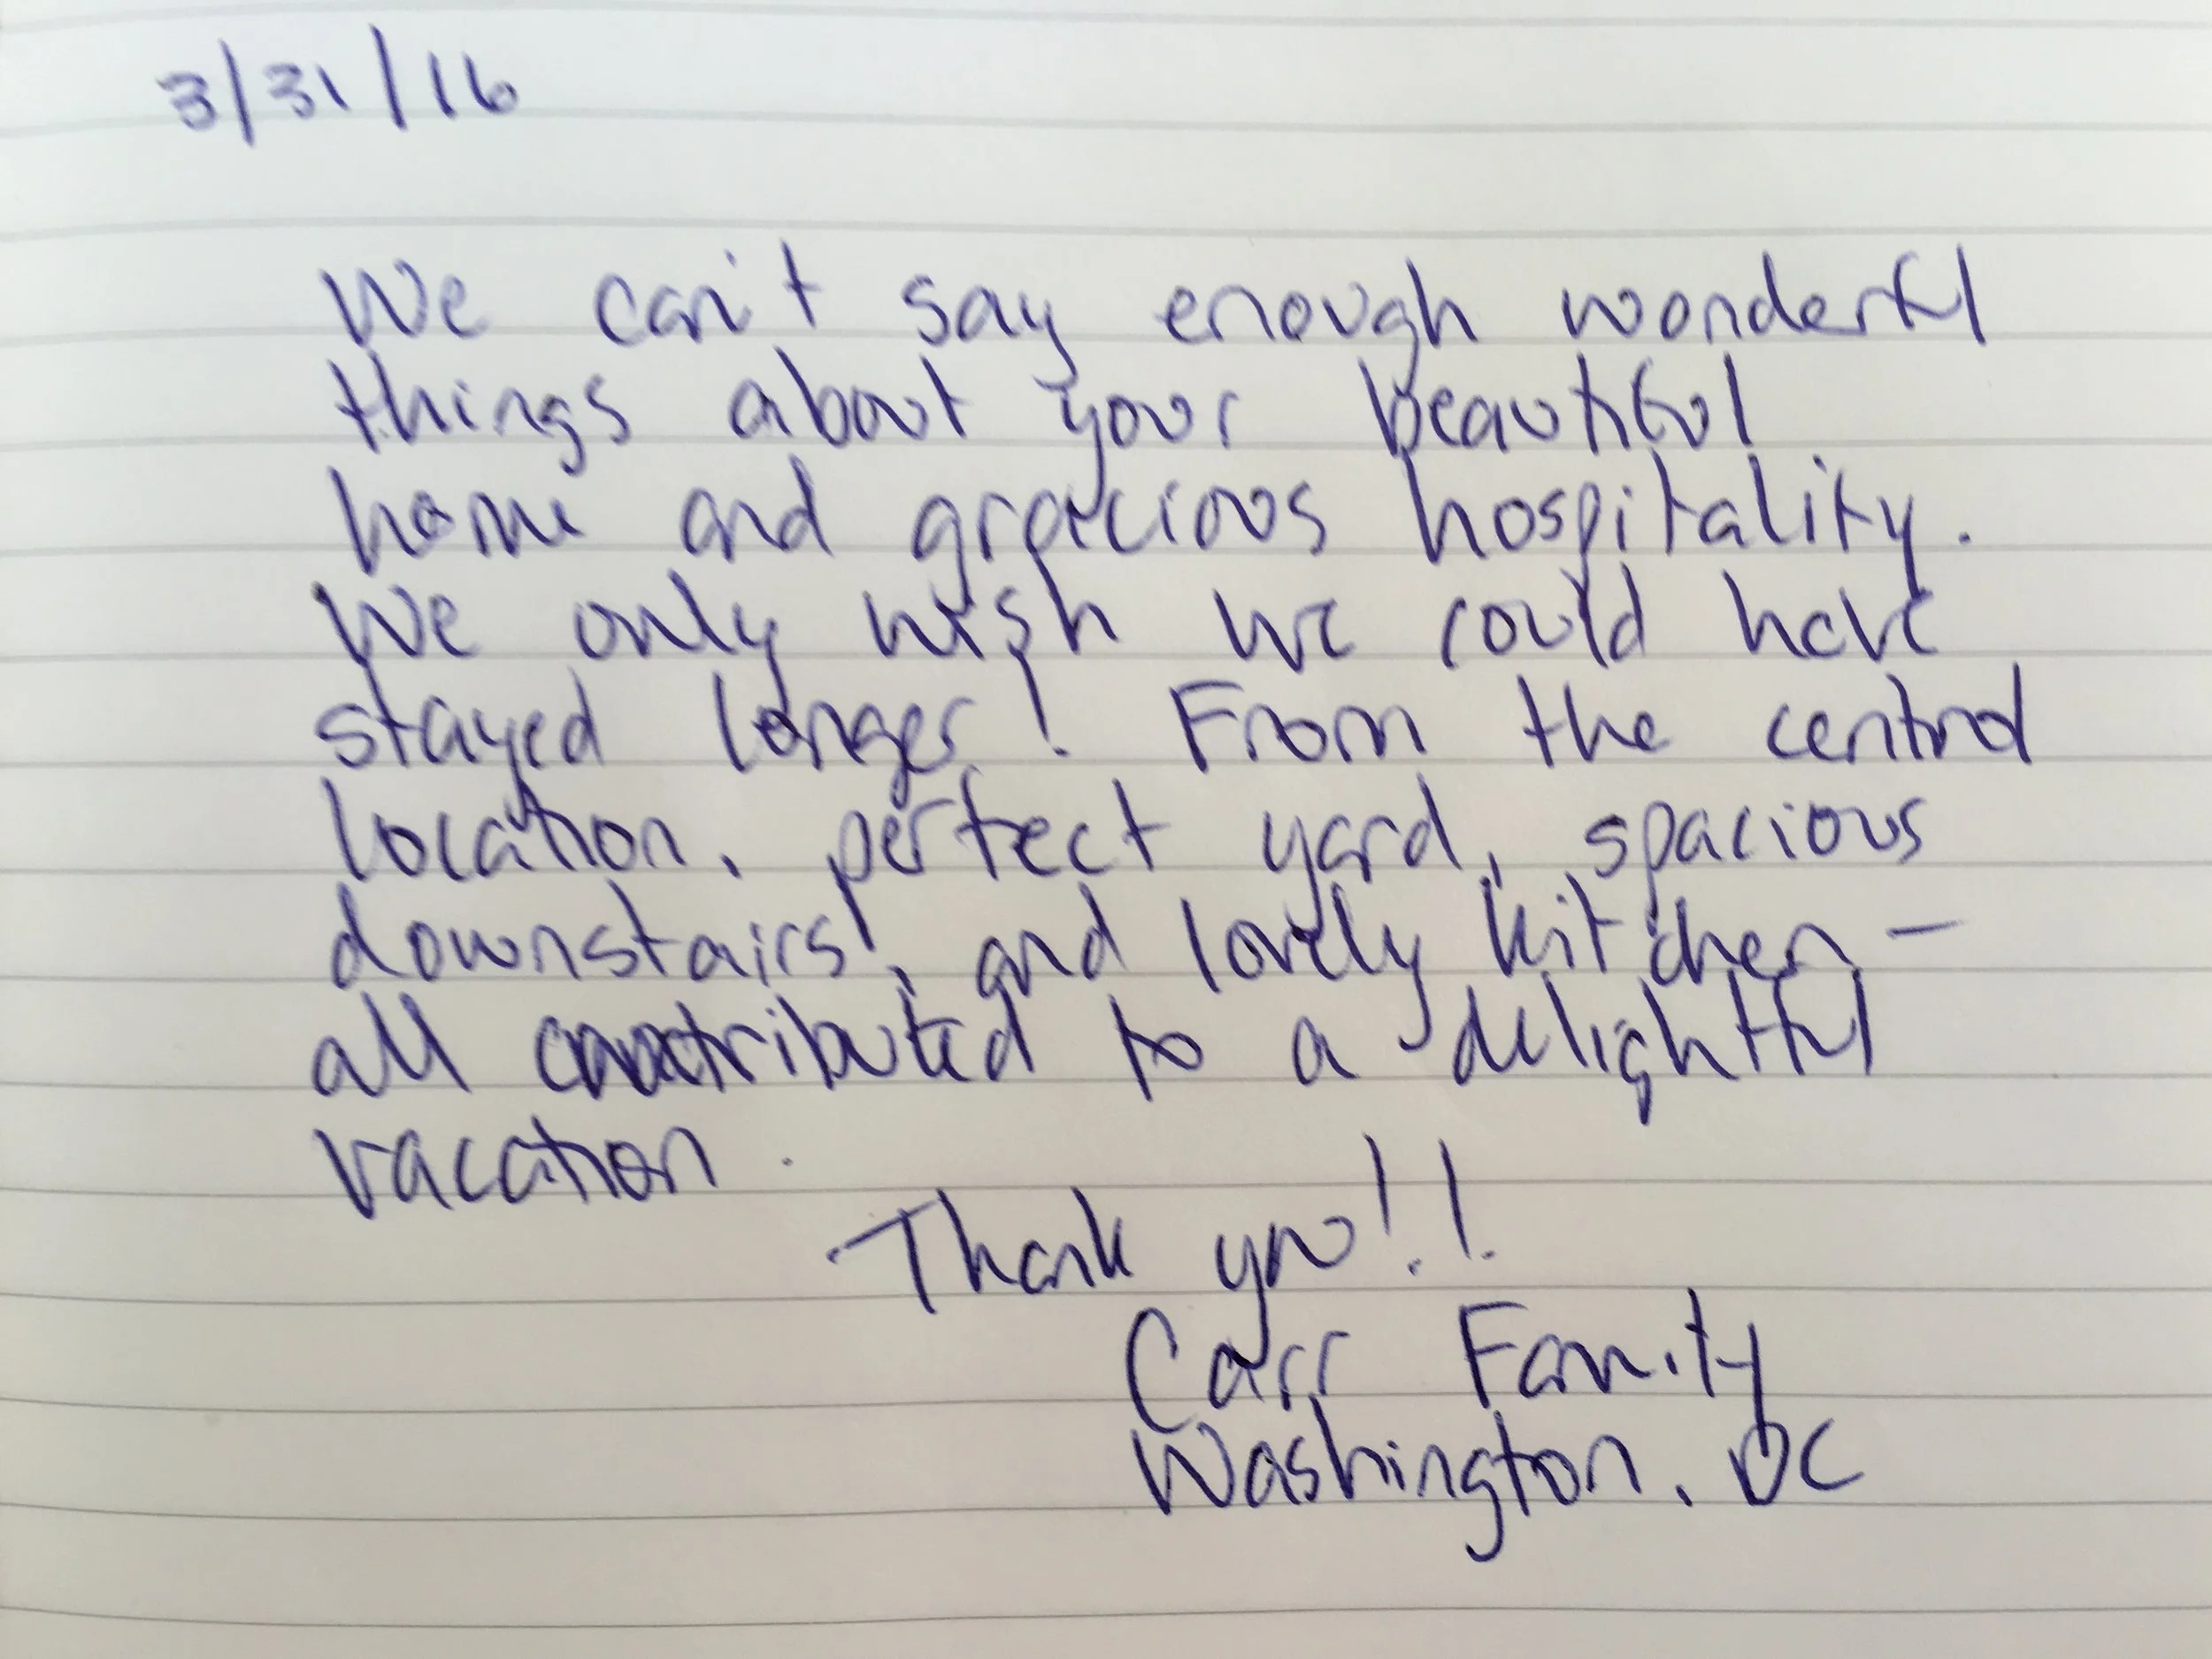 3/31/16
We can't say enough wonderful
things about your beautiful
home and gracious hospitality.
We only wish we could have
stayed longer! From the central
location, perfect yard, spacious
downstairs, and lovely kitchen -
all contributed to a delightful
vacation.
Thank you!!
Carr Family
Washington, DC